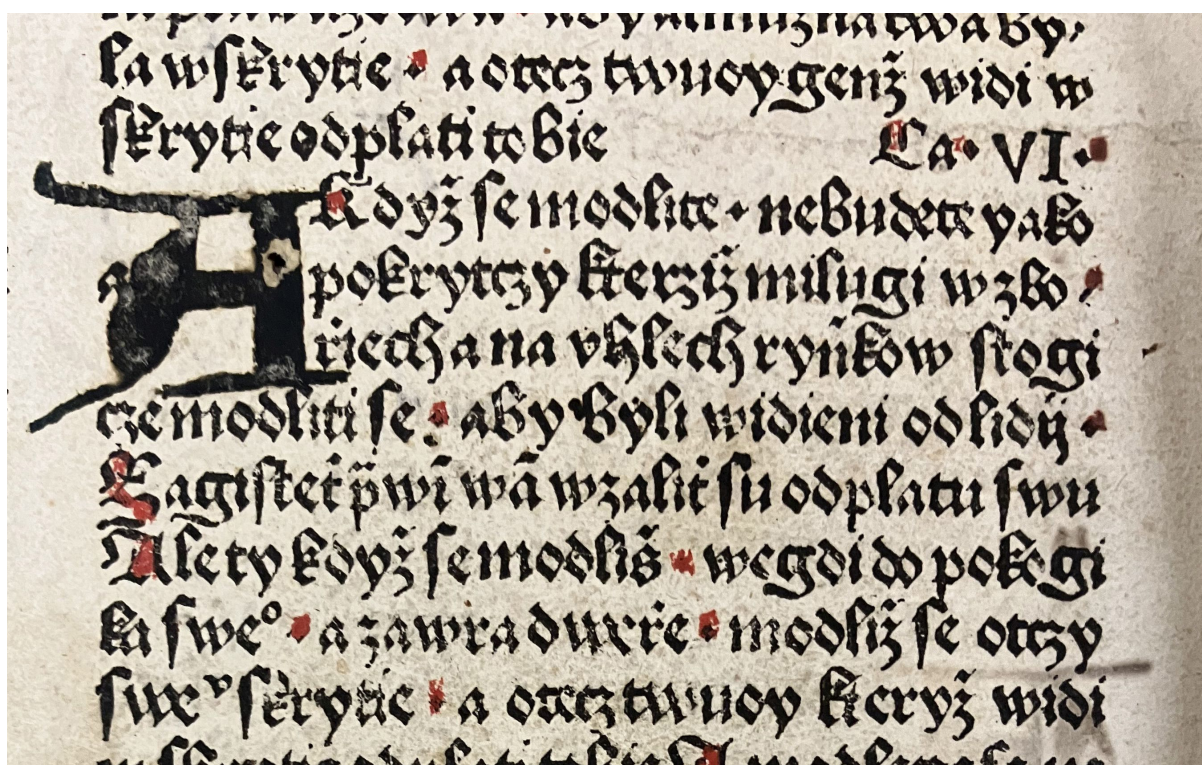 la wskrytie · a otecz twuoy genž widi w
skrytie odplati tobie Ca· VI·
A Když se modlite · nebudete yako
pokrytczy kterziž milugi w zbo
riech a na vhlech rynkow stogi
cze modliti se · aby byli widieni od lidij ·
Zagiste t̃ p̃wi wã wzalit su odplatu swu
Ale ty když se modliš · wegdi do pokogi
ka sweº · a zawra dwrře · modliž se otczy
sweᵛ skrytie · a otecz twuoy kteryž widi